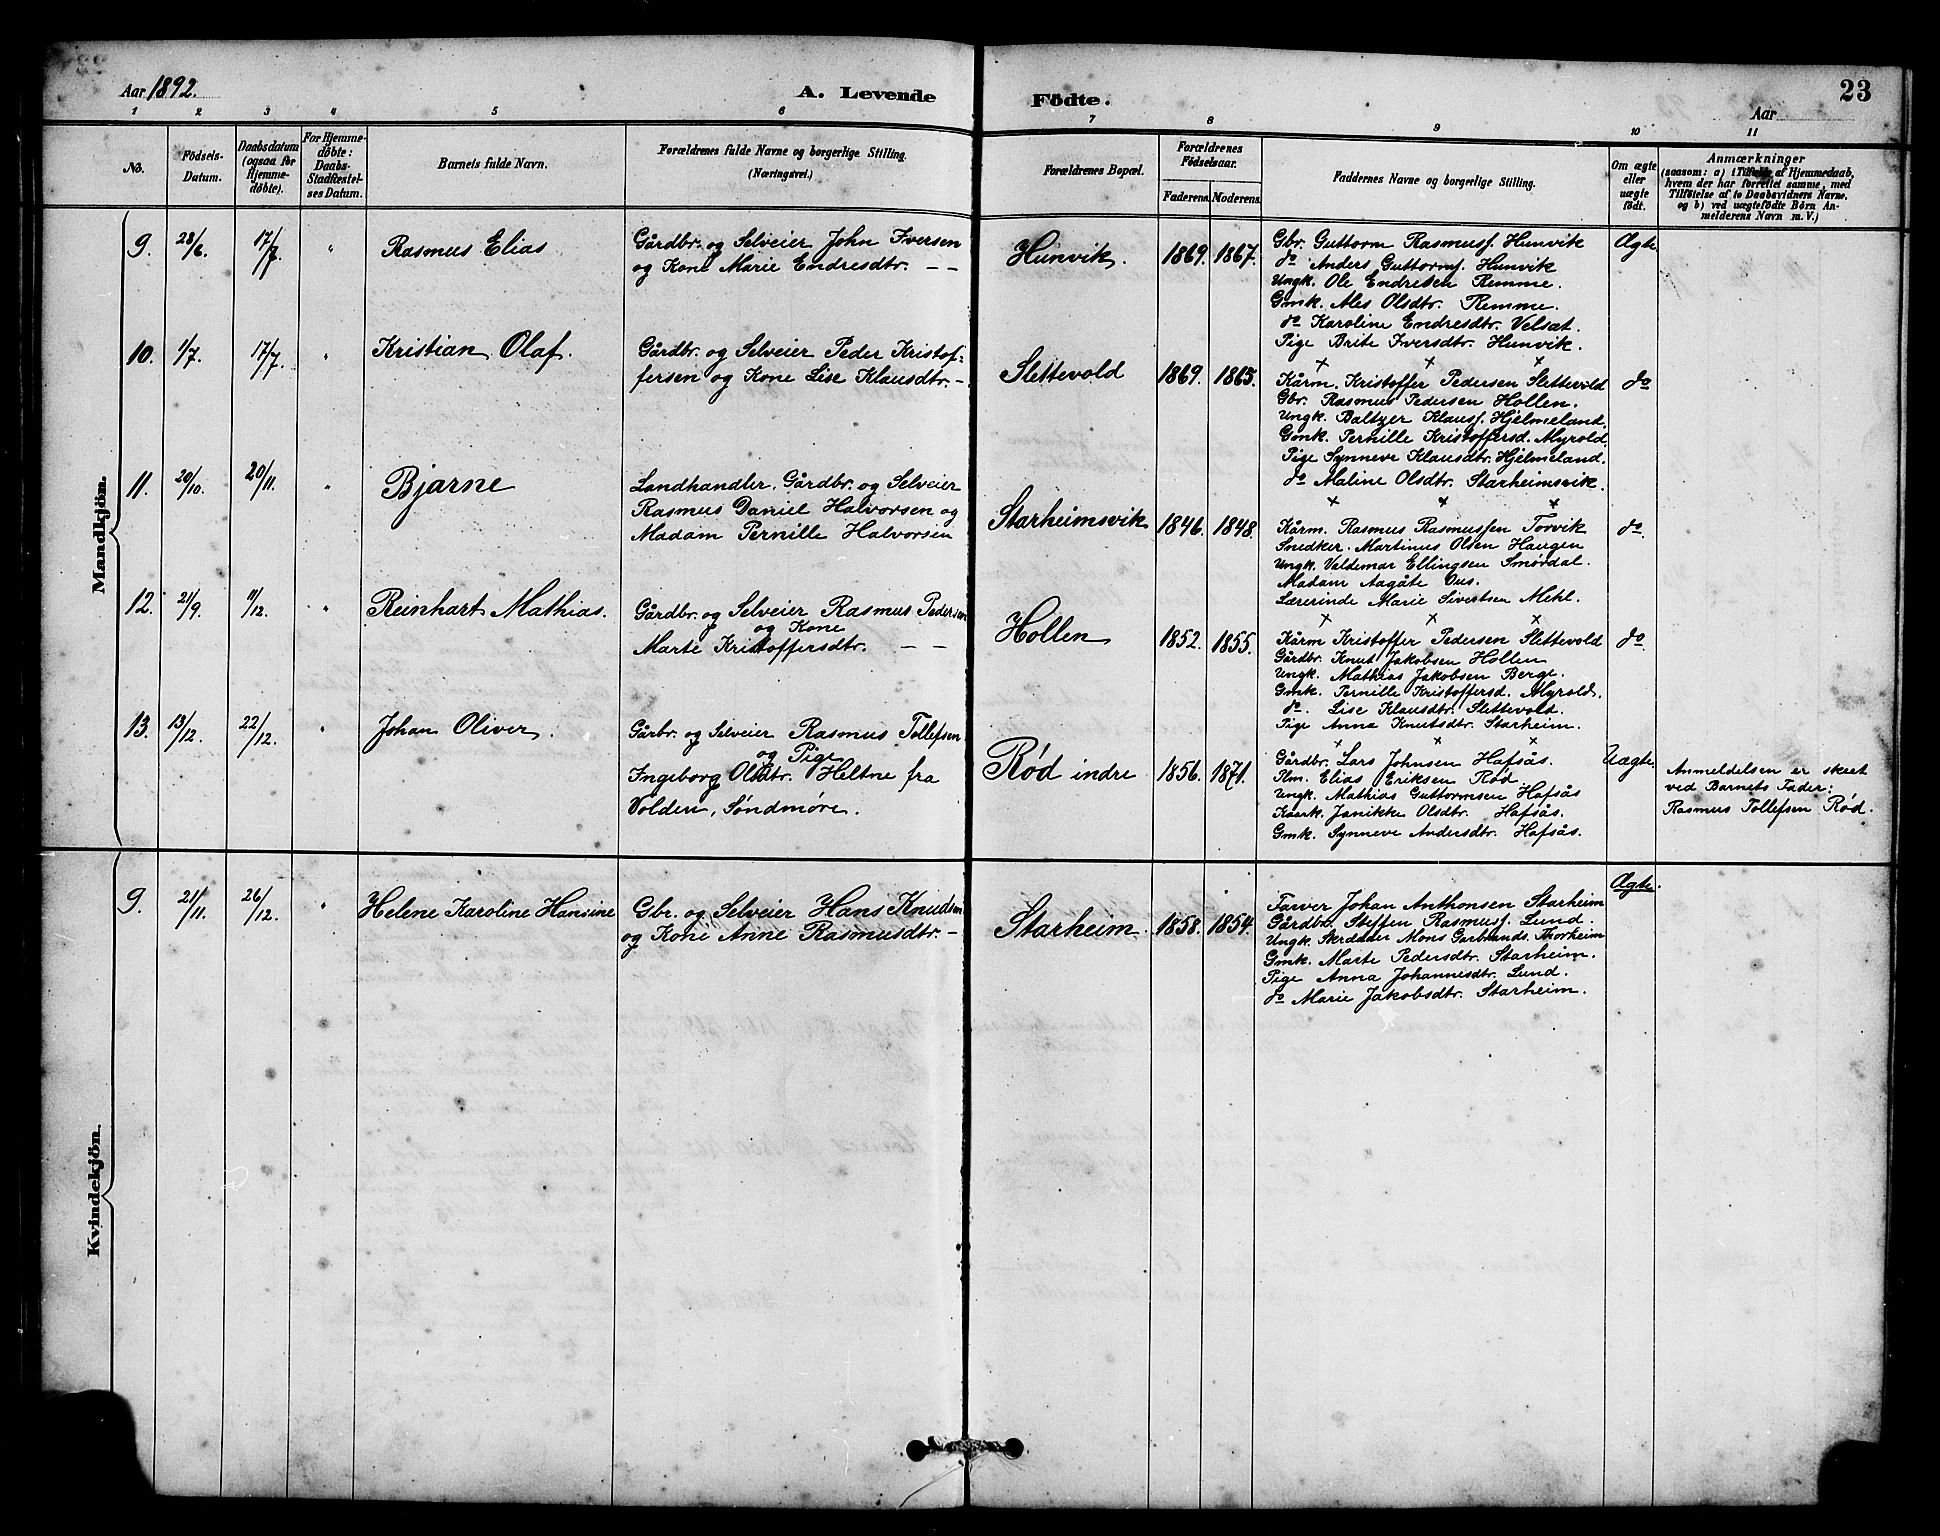 Aar 1892.
A. Levende Födte.
Aar
23
1 2 3 4 5 6 7 8 9 10 11
No.
Födsels-
Datum.
Daabsdatum
(ogsaa for
Hjemme-
döbte).
For Hjemme-
döbte:
Daabs-
Stadfæstel-
ses Datum.
Barnets fulde Navn.
Forældrenes fulde Navne og borgerlige Stilling.
(Næringsvei.)
Forældrenes Bopæl.
Forældrenes
Födselsaar.
Faderens. Moderens.
Faddernes Navne og borgerlige Stilling.
Om ægte
eller
uægte
födt.
Anmærkninger
(saasom: a) i Tilfælde af Hjemmedaab,
hvem der har forrettet samme, med
Tilföielse af to Daabsvidners Navne.
og b) ved uægtefödte Börn An-
melderens Navn m. V.)
Mandkjön.
9. 28/6. 17/7. " Rasmus Elias
Gårdbr. og Selveier John Iversen
og Kone Marie Endresdtr. — —
Hunvik. 1869. 1867.
Gbr. Guttorm Rasmuss. Hunvik
do Anders Guttorms. Hunvik
Ungk. Ole Endresen Remme.
Gmk. Ales Olsdtr. Remme.
do Karoline Endresdtr. Velsæt.
Pige Brite Iversdtr. Hunvik.
Ægte
x x x
10. 1/7. 17/7. " Kristian Olaf.
Gårdbr. og Selveier Peder Kristof-
fersen og Kone Lise Klausdtr. —
Slettevold 1869. 1865.
Kårm. Kristoffer Pedersen Slettevold
Gbr. Rasmus Pedersen Hollen.
Ungk. Baltzer Klauss. Hjelmeland.
Gmk. Pernille Kristoffersd. Myrold.
Pige Synneve Klausdtr. Hjelmeland.
do Maline Olsdtr. Starheimsvik.
do
x x x
11. 20/10. 20/11. " Bjarne
Landhandler, Gårdbr. og Selveier
Rasmus Daniel Halvorsen og
Madam Pernille Halvorsen
Starheimsvik 1846. 1848.
Kårm. Rasmus Rasmussen Torvik
Snedker. Martinus Olsen Haugen
Ungk. Valdemar Ellingsen Smørdal.
Madam Aagåte Ous.
Lærerinde Marie Sivertsen Mekl.
do.
x x x
12. 21/9. 11/12. " Reinhart Mathias.
Gårdbr. og Selveier Rasmus Pedersen
og Kone
Marte Kristoffersdtr. — —
Hollen 1852. 1855.
Kårm Kristoffer Pedersen Slettevold
Gårdbr. Knut Jakobsen Hollen
Ungk. Mathias Jakobsen Berge.
Gmk. Pernille Kristoffersd. Myrold.
do. Lise Klausdtr. Slettevold.
Pige Anna Knutsdtr. Starheim.
do.
x x x
13. 13/12. 22/12. " Johan Oliver.
Gårbr. og Selveier Rasmus Tollefsen
og Pige
Ingeborg Olsdtr. Heltne fra
Volden, Søndmøre.
Rød indre 1856. 1871.
Gårdbr. Lars Johnsen Hafsås.
Plm. Elias Eriksen Rød.
Ungk. Mathias Guttormsen Hafsås
Kaark. Janikke Olsdtr. Hafsås.
Gmk. Synneve Andersdtr. Hafsås.
Uægte.
Anmeldelsen er skeet
ved Barnets Fader:
Rasmus Tollefsen Rød.
Kvindekjön.
9. 21/11. 26/12. " Helene Karoline Hansine
Gbr. og Selveier Hans Knudsen
og Kone Anne Rasmusdtr. —
Starheim. 1858. 1854.
Farver Johan Anthonsen Starheim
Gårdbr. Steffen Rasmuss. Lund.
Ungk. Skrdder Mons Garbrands. Thorheim
Gmk. Marte Pedersdtr. Starheim.
Pige Anna Johannesdtr. Lund.
do Marie Jakobsdtr. Starheim.
Ægte.